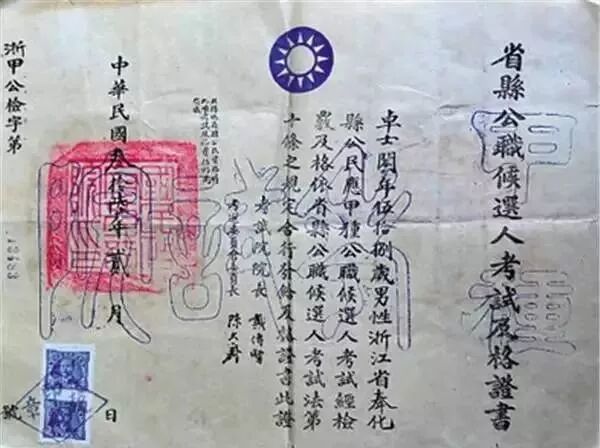 省縣公職候選人考試及格證書
車士閣年伍拾捌歲男性浙江省奉化
縣公民應甲種公職候選人考試經檢
覈及格依省縣公職候選人考試法第
十條之規定合行發給及格證書此證
考試院院長 戴傳賢
考選委員會委員長 陳大齊
中華民國叁拾柒年貳月 日
浙甲公檢字第 號
甲種
章